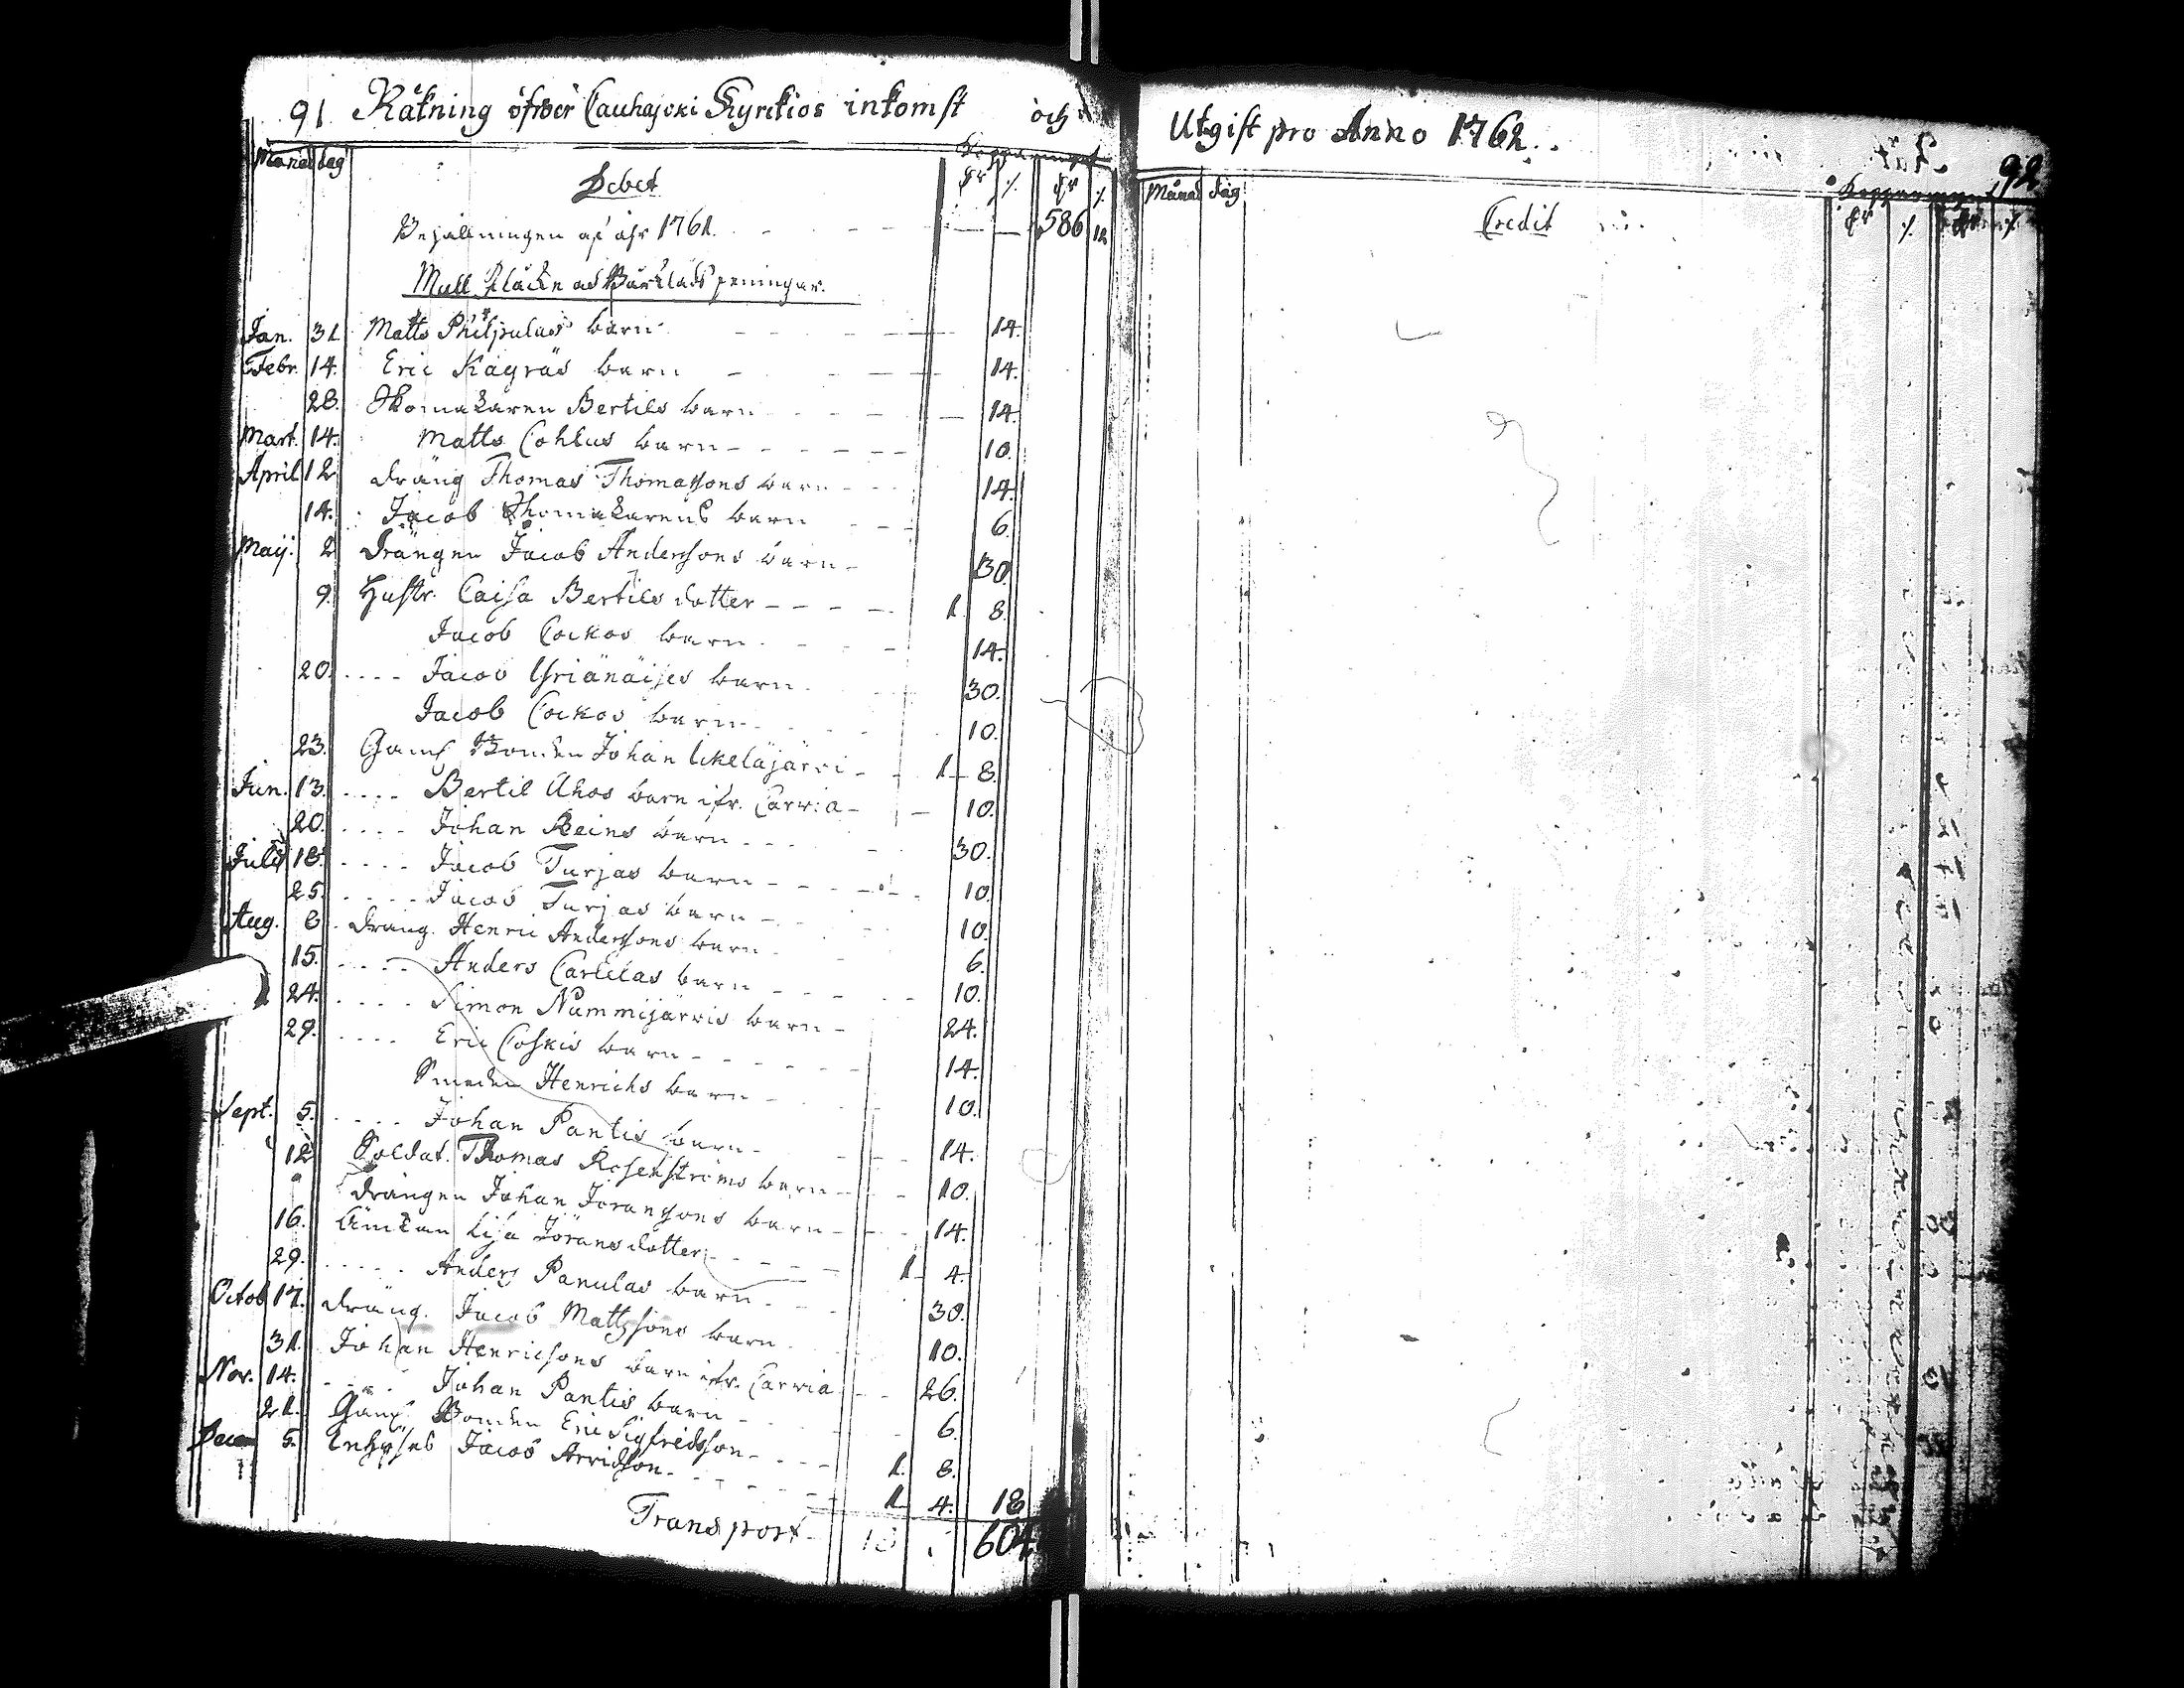 91 Räkning öfwer Cauhajoki Kyrckios inkomst och
Månad dag Debet
Behållningen af åhr 1761. 586 12
Mull Pläcken ad Bårklädspeningar.
Jan. 31 Matts Philpulas barn 14.
Febr. 14. Eric Kagräs barn 14.
28. Skomakaren Bertils barn 14.
Mart. 14. Matts Cohlus barn 10.
April 12 dräng Thomas Thomassons barn 14.
14. Jacob Skomakarens barn 6.
Maij. 2 drängen Jacob Anderssons barn 30.
9. Hustr. Caisa Bertils dotter 1. 8.
Jacob Cockos barn 14.
20. Jacob Yriänäises barn 30.
Jacob Cockos barn 10.
23. Gaml Bonden Johan Ikeläjärvi 1 8.
Jun. 13. Bertil Ahos barn ifr. Carvia 10.
20. Johan Reins barn 30.
Julii 18. Jacob Turjas barn 10.
25. Jacob Turjas barn 10.
Aug. 8 dräng. Henric Anderssons barn 6.
15. Anders Carlelas barn 10.
24. Simon Nummijärvis barn 24.
29. Eric Coskis barn 14.
Smeden Henrichs barn 10.
Sept. 5. Johan Pantis barn 14.
12 Soldat. Thomas Rosenströms barn 10.
drängen Johan Joranssons barn 14.
16. Änckan Lisa Jörans dotter 1 4.
29. Anders Panulas barn 30.
Octob 17. dräng. Jacob Mattssons barn 10.
31. Johan Henricsons barn ifr. Carvia 26.
Nov. 14. Johan Pantis barn 6.
21. Gaml Bonden Eric Sigfredsson 1. 8.
Decem 5. Inhyses Jacob Arvidson 1 4. 18
Transport 604
Utgift pro Anno 1762.
92
Månad dag Credit